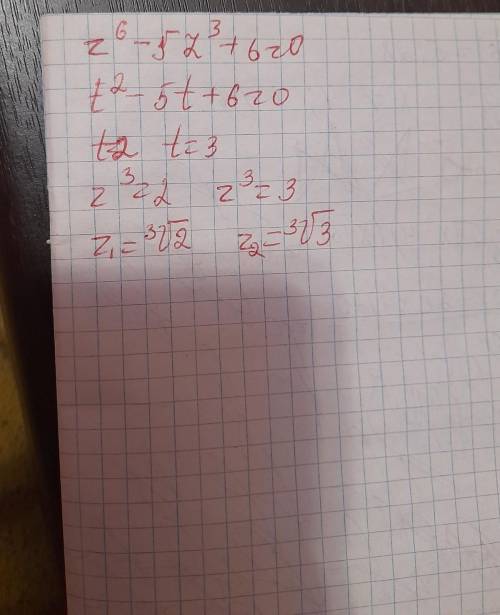 z⁶ - 5z³ + 6 = 0
t² - 5t + 6 = 0
t=2 t = 3
z³ = 2 z³ = 3
z₁ = ³√2 z₂ = ³√3